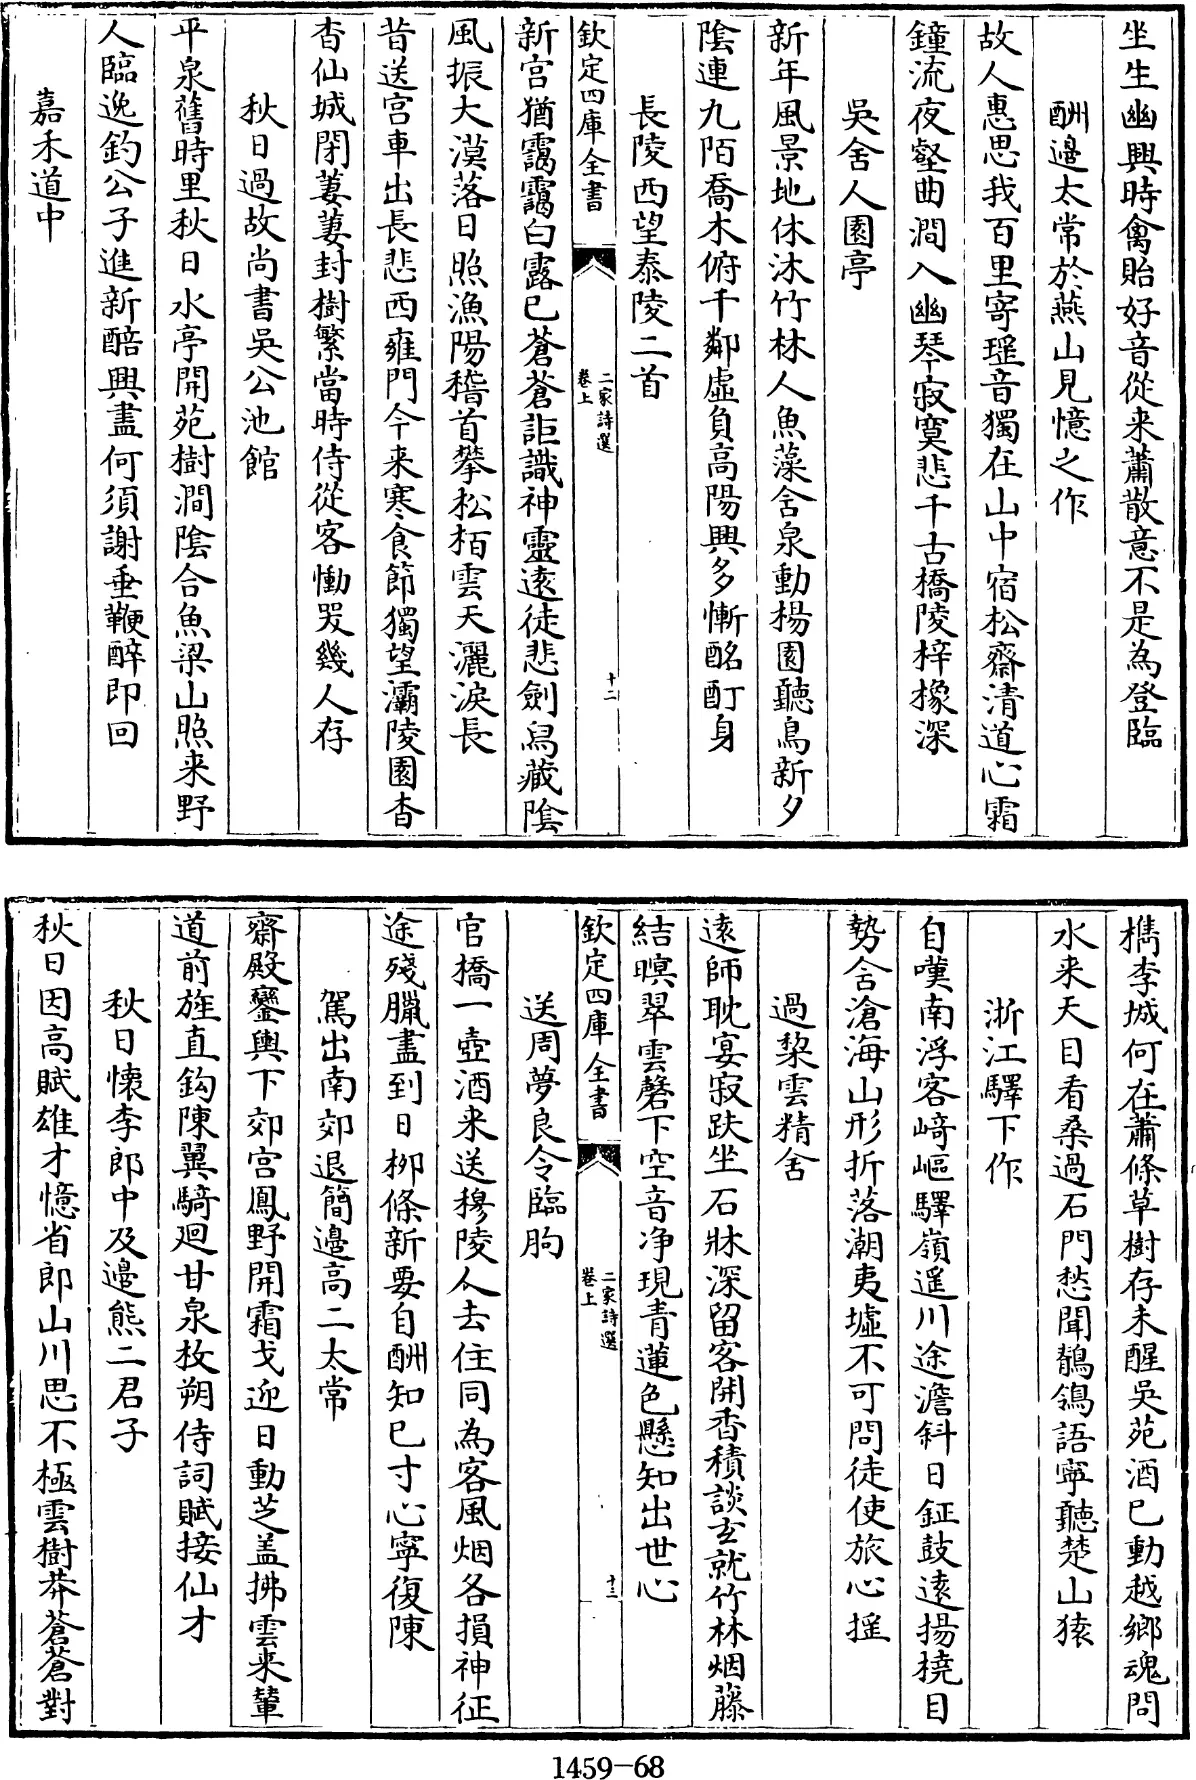 坐生幽興時禽貽好音從来蕭散意不是為登臨
酬邉太常於燕山見憶之作
故人惠思我百里寄瑶音獨在山中宿松齋清道心霜
鐘流夜壑曲澗入幽琴寂寞悲千古橋陵梓橡深
吳舍人園亭
新年風景地休沐竹林人魚藻舍泉動楊園聽鳥新夕
陰連九陌喬木俯千鄰虛負高陽興多慚酩酊身
長陵西望泰陵二首
欽定四庫全書
二家詩選
卷上
十二
新宫猶靄靄白露已蒼蒼詎識神靈逺徒悲劍舄藏陰
風振大漠落日照漁陽稽首攀松栢雲天灑淚長
昔送宫車出長悲西雍門今来寒食節獨望灞陵園杳
杳仙城閉萋萋封樹繁當時侍從客慟哭幾人存
秋日過故尚書吳公池館
平泉舊時里秋日水亭開苑樹澗陰合魚梁山照来野
人臨逸釣公子進新醅興盡何須謝垂鞭醉即回
嘉禾道中
檇李城何在蕭條草樹存未醒吳苑酒已動越鄉魂問
水来天目看桑過石門愁聞鶺鴒語寧聽楚山猿
浙江驛下作
自嘆南浮客崎嶇驛嶺遥川途澹斜日鉦鼓逺揚橈目
勢含滄海山形折落潮夷墟不可問徒使旅心摇
過棃雲精舍
逺師耽宴寂趺坐石牀深留客開香積談玄就竹林烟藤
結暝翠雲磬下空音净現青蓮色懸知出世心
欽定四庫全書
二家詩選
卷上
十三
送周夢良令臨朐
官橋一壺酒来送穆陵人去住同為客風烟各損神征
途殘臘盡到日栁條新要自酬知已寸心寧復陳
駕出南郊退簡邉高二太常
齋殿鑾輿下郊宫鳳野開霜戈迎日動芝盖拂雲来輦
道前旌直鈎陳翼騎廻甘泉枚朔侍詞賦接仙才
秋日懷李郎中及邉熊二君子
秋日因高賦雄才憶省郎山川思不極雲樹莽蒼蒼對
1459-68